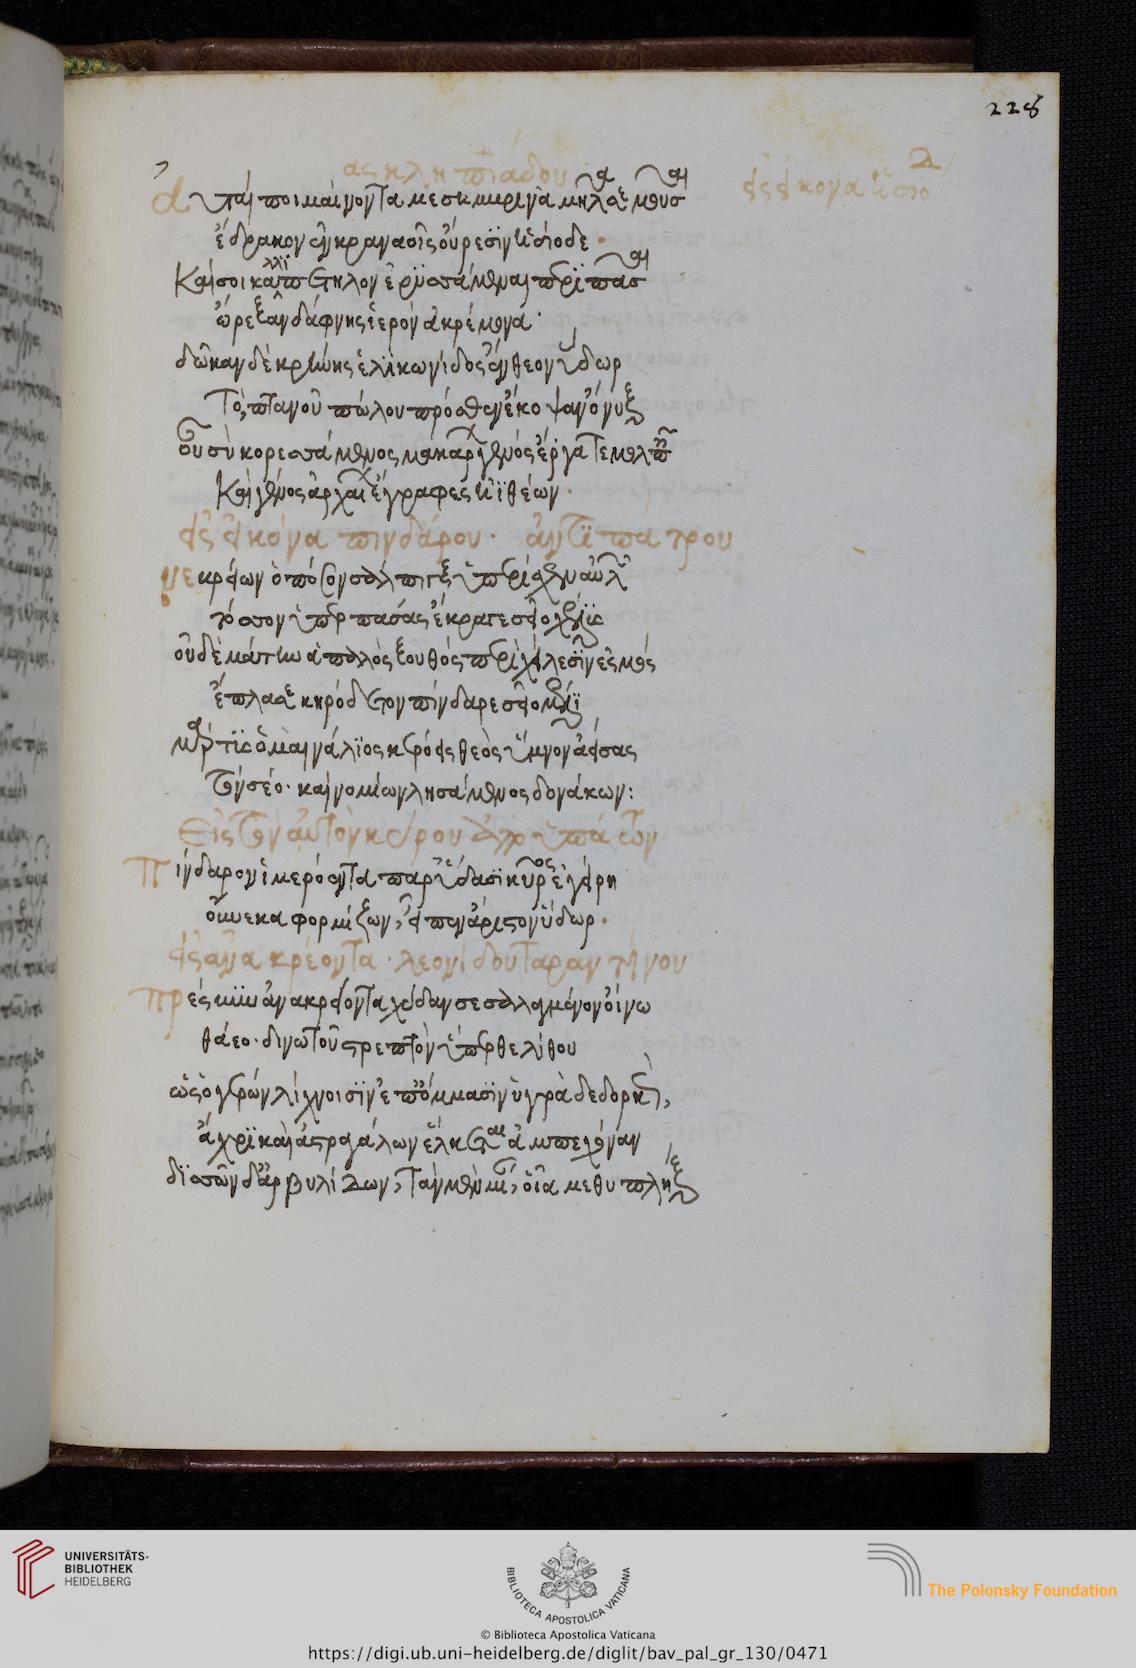 228
ἀσκληπιάδου
εἰς εἰκόνα ἡσιό
Αὐταὶ ποιμαίνοντα μεσημερινὰ μῆλά σε μοῦσαι
ἔδρακον ἐν κραναοῖς οὔρεσιν ἡσίοδε·
Καί σοι καλλιπέτηλον ἐρυσσάμεναι περὶ πᾶσαι
ὤρεξαν δάφνης ἱερὸν ἀκρέμονα·
δῶκαν δὲ κρήνης ἑλικωνίδος ἔνθεον ὕδωρ
Τὸ πτανοῦ πώλου πρόσθεν ἔκοψεν ὄνυξ
Οὗ σὺ κορεσσάμενος μακάρων γένος ἔργα τε μολπαῖς
Καὶ γένος ἀρχαίων ἔγραφες ἡϊθέων·
εἰς εἰκόνα πινδάρου· ἀντιπάτρου
Νεκρείων ὁπόσον σάλπιγξ ὑπερίαχεν αὐλῶν
τόσσον ὑπὲρ πάσας ἔκραγε σεῖο χέλυς
οὐδὲ μάτην ἁπαλὸς ξουθὸς περὶ χείλεσιν ἑσμὸς
ἔπλασε κηρόδετον πίνδαρε σεῖο μέλι
μάρτυς ὁ μαινάλιος κερόεις θεὸς ὕμνον ἀείσας
τὸν σέο· καὶ νομίων λησάμενος δονάκων:
Εἰς τὸν αὐτὸν
Πίνδαρον ἱμερόεντα παρ' ἠιδασι κύρος ἐγείρει
οὕνεκα φορμίζων, εἶπεν ἄριστον ὕδωρ·
εἰς ἀνακρέοντα· λεονίδου ταραντίνου
Πρέσβυν ἀνακρείοντα χύδαν σεσαλαγμένον οἴνω
θάεο· δινωτοῦ στρεπτὸν ὕπερθε λίθου
ὡς ὁ γέρων λίχνοισιν ἐπ' ὄμμασιν ὑγρὰ δεδορκώς,
ἄχρι καὶ ἀστραγάλων ἕλκεται ἀμπεχόναν
δισσῶν δ' ἀρβυλίδων, τὰν μὲν μίαν, οἷα μεθυπλήξ
UNIVERSITÄTS-
BIBLIOTHEK
HEIDELBERG
BIBLIOTECA APOSTOLICA VATICANA
The Polonsky Foundation
© Biblioteca Apostolica Vaticana
https://digi.ub.uni-heidelberg.de/diglit/bav_pal_gr_130/0471